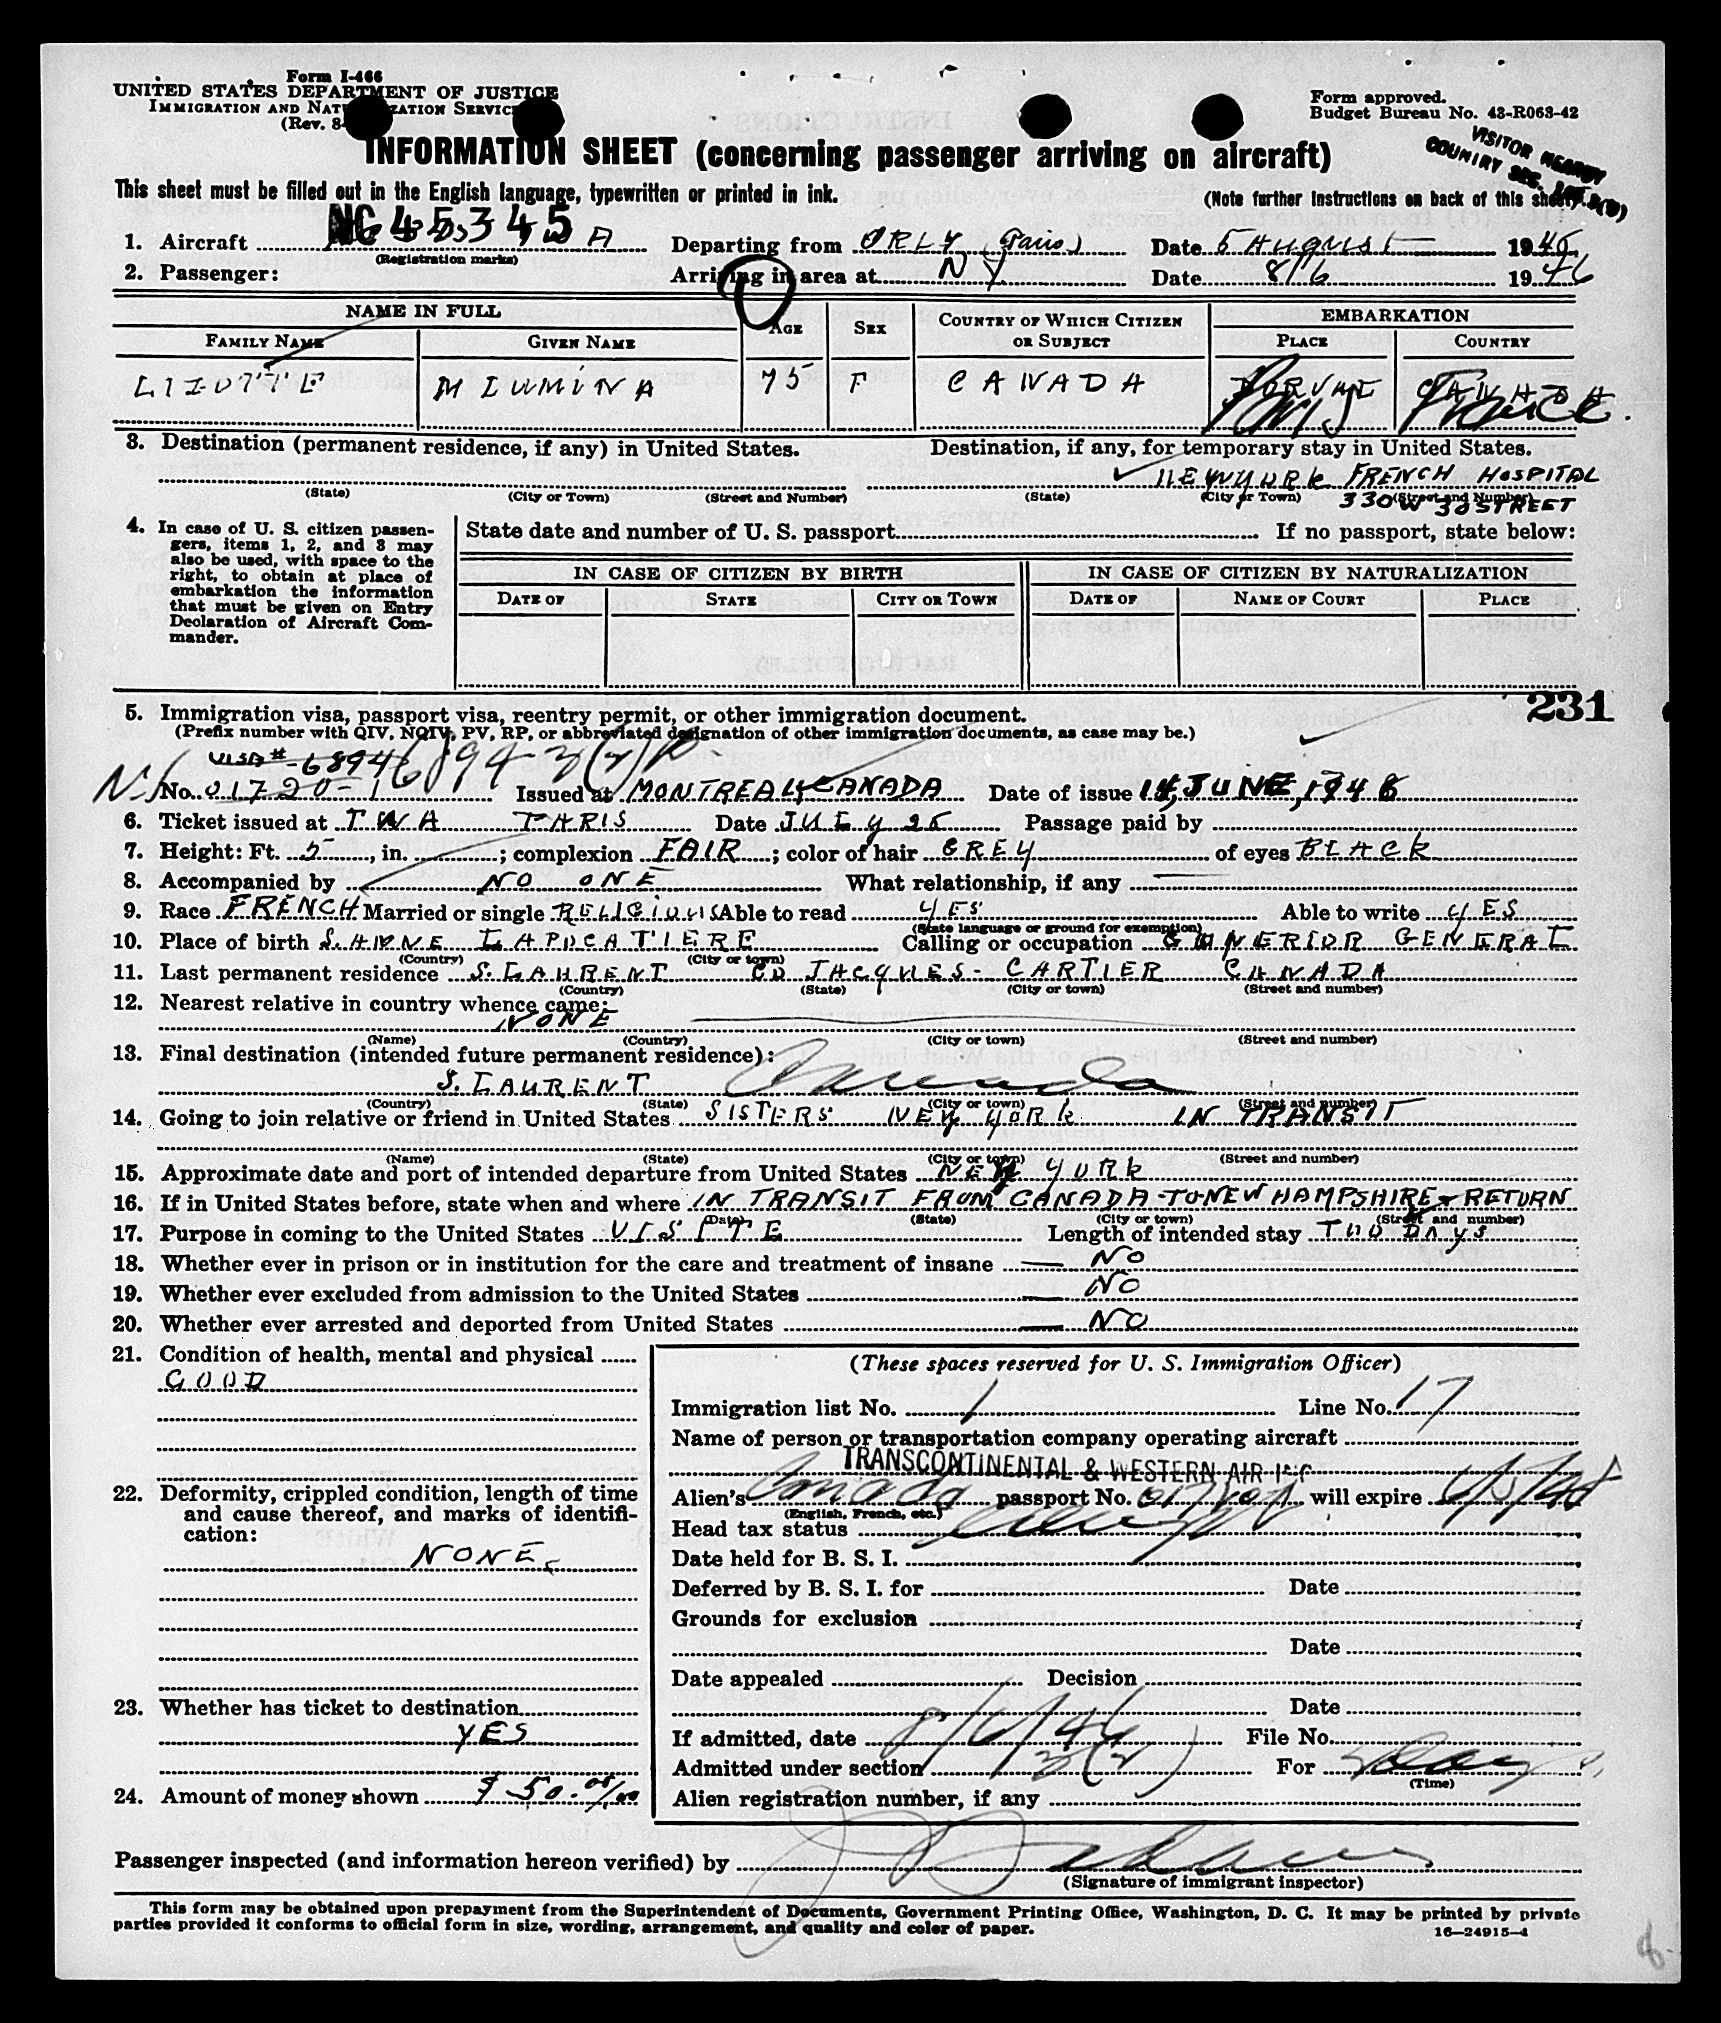 Form I-466
UNITED STATES DEPARTMENT OF JUSTICE
IMMIGRATION AND NATURALIZATION SERVICE
(Rev. 8-
Form approved.
Budget Bureau No. 43-R063-42
VISITOR
COUNTRY SEC.
INFORMATION SHEET (concerning passenger arriving on aircraft)
This sheet must be filled out in the English language, typewritten or printed in ink.
(Note further instructions on back of this sheet)
1. Aircraft NC 45345
(Registration marks)
Departing from ORLY (Paris) Date 5 AUGUST 1946
2. Passenger:
Arriving in area at NY Date 8/6 1946
NAME IN FULL
FAMILY NAME GIVEN NAME AGE SEX COUNTRY OF WHICH CITIZEN OR SUBJECT EMBARKATION
PLACE COUNTRY
LIZOTTE MILUMINA 75 F CANADA DORVAL CANADA
Paris France
3. Destination (permanent residence, if any) in United States. Destination, if any, for temporary stay in United States.
NEWYORK FRENCH HOSPITAL
(State) (City or Town) (Street and Number) (State) (City or Town) (Street and Number)
330 W 30 STREET
4. In case of U. S. citizen passengers, items 1, 2, and 3 may also be used, with space to the right, to obtain at place of embarkation the information that must be given on Entry Declaration of Aircraft Commander.
State date and number of U. S. passport If no passport, state below:
IN CASE OF CITIZEN BY BIRTH IN CASE OF CITIZEN BY NATURALIZATION
DATE OF STATE CITY OR TOWN DATE OF NAME OF COURT PLACE
231
5. Immigration visa, passport visa, reentry permit, or other immigration document.
(Prefix number with QIV, NQIV, PV, RP, or abbreviated designation of other immigration documents, as case may be.)
VISA # 6894 6894-3(2)
No. 01720-1 Issued at MONTREAL CANADA Date of issue 14, JUNE, 1946
6. Ticket issued at TWA PARIS Date JULY 25 Passage paid by
7. Height: Ft. 5, in. ; complexion FAIR; color of hair GREY of eyes BLACK
8. Accompanied by NO ONE What relationship, if any
9. Race FRENCH Married or single RELIGIOUS Able to read YES Able to write YES
(State language or ground for exemption)
10. Place of birth S. ANNE LAPOCATIERE Calling or occupation GENERAL
(Country) (City or town)
11. Last permanent residence S. LAURENT CO JACQUES-CARTIER CANADA
(Country) (State) (City or town) (Street and number)
12. Nearest relative in country whence came:
NONE
(Name) (Country) (City or town) (Street and number)
13. Final destination (intended future permanent residence):
S. LAURENT Canada
(Country) (State) (City or town) (Street and number)
14. Going to join relative or friend in United States SISTERS NEW YORK IN TRANSIT
(Name) (State) (City or town) (Street and number)
15. Approximate date and port of intended departure from United States NEW YORK
16. If in United States before, state when and where IN TRANSIT FROM CANADA TO NEW HAMPSHIRE & RETURN
(Date) (State) (City or town) (Street and number)
17. Purpose in coming to the United States VISITE Length of intended stay TWO DAYS
18. Whether ever in prison or in institution for the care and treatment of insane NO
19. Whether ever excluded from admission to the United States NO
20. Whether ever arrested and deported from United States NO
21. Condition of health, mental and physical
GOOD
22. Deformity, crippled condition, length of time and cause thereof, and marks of identification:
NONE
23. Whether has ticket to destination
YES
24. Amount of money shown $ 50.00/100
(These spaces reserved for U. S. Immigration Officer)
Immigration list No. 1 Line No. 17
Name of person or transportation company operating aircraft
TRANSCONTINENTAL & WESTERN AIR INC
Alien's Canada passport No. will expire
(English, French, etc.)
Head tax status
Date held for B. S. I.
Deferred by B. S. I. for Date
Grounds for exclusion
Date
Date appealed Decision
Date
If admitted, date 8/6/46 File No.
Admitted under section 3(2) For
(Time)
Alien registration number, if any
Passenger inspected (and information hereon verified) by
(Signature of immigrant inspector)
This form may be obtained upon prepayment from the Superintendent of Documents, Government Printing Office, Washington, D. C. It may be printed by private
parties provided it conforms to official form in size, wording, arrangement, and quality and color of paper.
16—24915-4
8